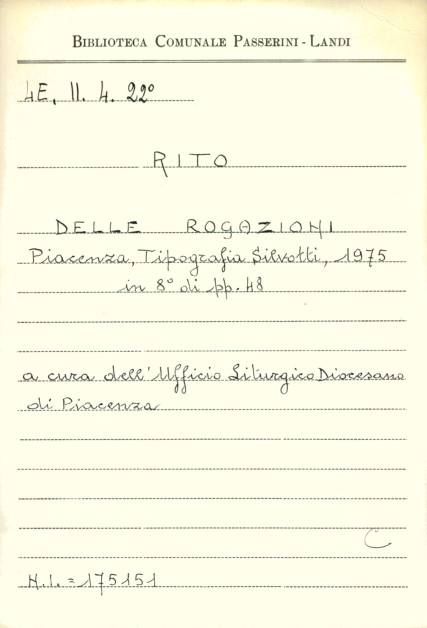 BIBLIOTECA COMUNALE PASSERINI - LANDI
4E. II. 4. 22°
RITO
DELLE ROGAZIONI
Piacenza, Tipografia Silvotti, 1975
in 8° di pp. 48
a cura dell'Ufficio Liturgico Diocesano
di Piacenza
C
N.I. = 175151